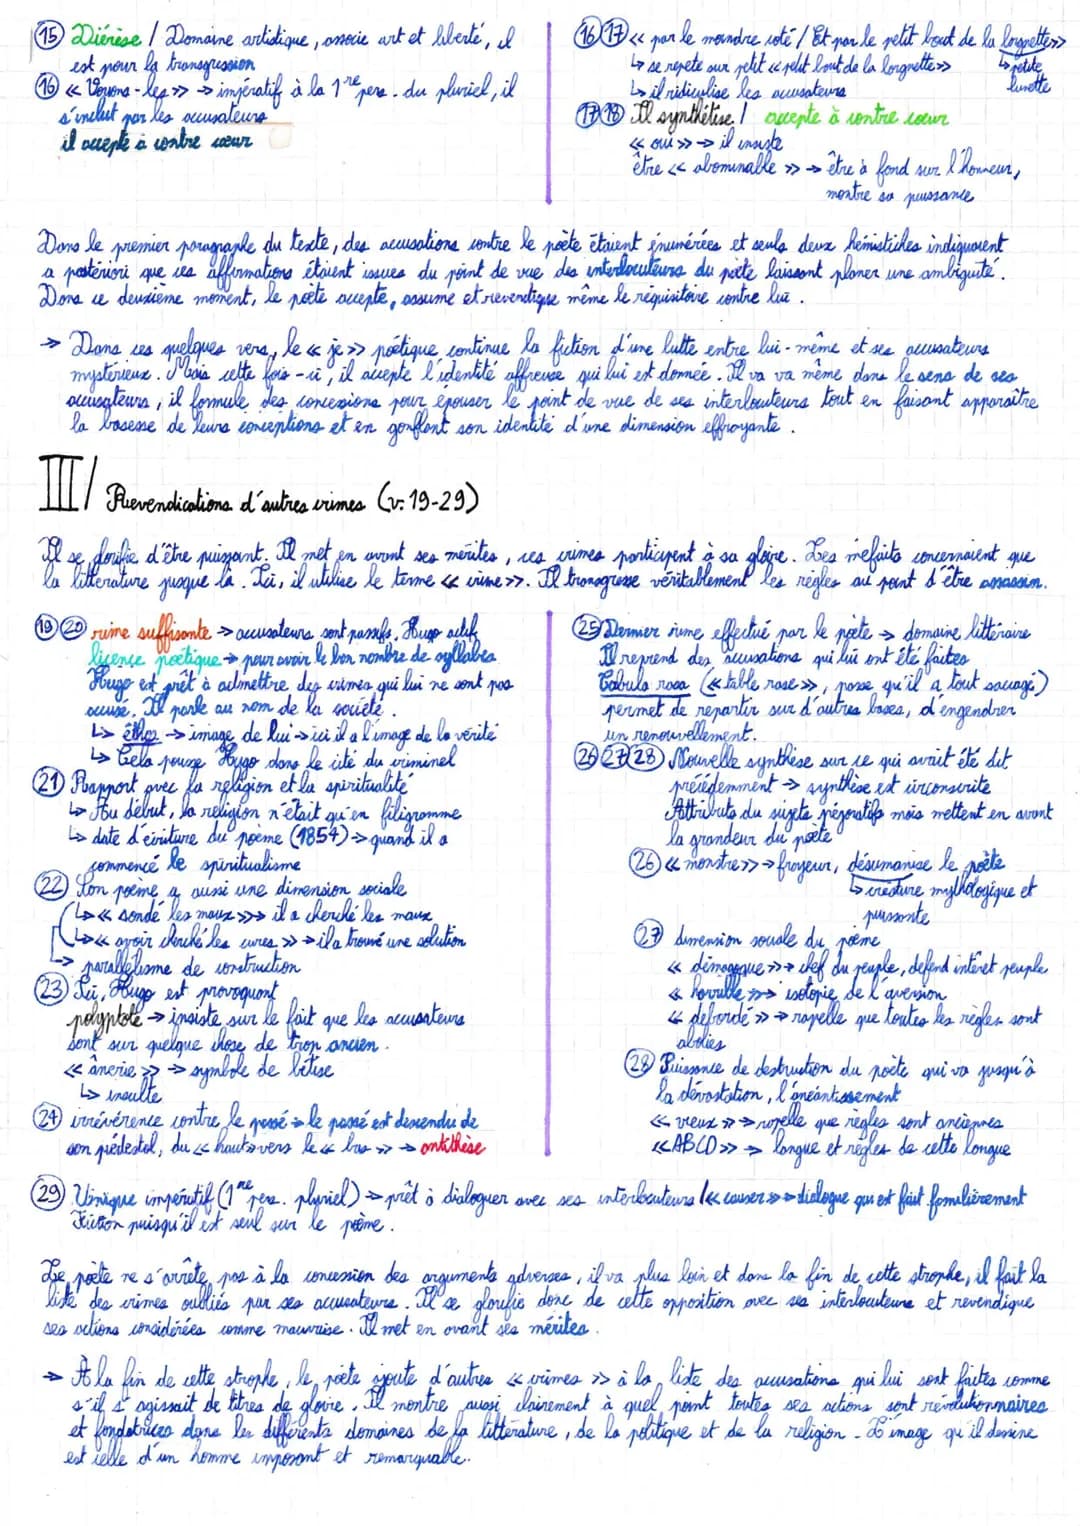 ⑮ Diérèse / Domaine artistique, associe art et liberté, il
est pour la transgression
⑯ « Voyons-les » → impératif à la 1re pers. du pluriel, il
s'inclut par les accusateurs
il accepte à contre cœur
⑯⑰ « par le moindre coté / Et par le petit bout de la lorgnette »
↳ se repète sur petit « petit bout de la lorgnette » ↳ petite
↳ il ridiculise les accusateurs lunette
⑰⑱ Il synthétise / accepte à contre cœur
« oui » → il insiste
être « abominable » → être à fond sur l'honneur,
montre sa puissance
Dans le premier paragraphe du texte, des accusations contre le poète étaient énumérées et seuls deux hémistiches indiquaient
a postériori que ces affirmations étaient issues du point de vue des interlocuteurs du poète laissant planer une ambiguité.
Dans ce deuxième moment, le poète accepte, assume et revendique même le réquisitoire contre lui.
→ Dans ces quelques vers, le « je » poétique continue la fiction d'une lutte entre lui-même et ses accusateurs
mystérieux. Mais cette fois-ci, il accepte l'identité affreuse qui lui est donnée. Il va va même dans le sens de ses
accusateurs, il formule des concessions pour épouser le point de vue de ses interlocuteurs tout en faisant apparaître
la bassesse de leurs conceptions et en gonflant son identité d'une dimension effroyante.
III/ Revendications d'autres crimes (v. 19-29)
Il se glorifie d'être puissant. Il met en avant ses mérites, ces crimes participent à sa gloire. Les méfaits concernaient que
la littérature jusque là. Ici, il utilise le terme « crime ». Il transgresse véritablement les règles au point d'être assassin.
⑲⑳ rime suffisante → accusateurs sont passifs, Hugo actif
licence poétique → pour avoir le bon nombre de syllabes
Hugo est prêt à admettre des crimes qui lui ne sont pas
accusé. Il parle au nom de la société.
↳ éthos → image de lui → ici il a l'image de la vérité
↳ Cela pousse Hugo dans le cité du criminel
㉑ Rapport avec la religion et la spiritualité
↳ Au début, la religion n'était qu'en filigramme
↳ date d'écriture du poème (1854) → quand il a
commencé le spiritualisme
㉒ Son poème a aussi une dimension sociale
↳ « sondé les maux » → il a cherché les maux
↳ « avoir cherché les cures » → il a trouvé une solution
→ parallélisme de construction
㉓ Ici, Hugo est provoquant
polyptote → insiste sur le fait que les accusateurs
sont sur quelque chose de trop ancien.
« ânerie » → symbole de bêtise
↳ insulte
㉔ irrévérence contre le passé → le passé est descendu de
son piédestal, du « haut » vers le « bas » → antithèse
㉕ Dernier crime effectué par le poète → domaine littéraire
Il reprend des accusations qui lui ont été faites
Tabula rasa (« table rase », passe qu'il a tout sacagé)
permet de repartir sur d'autres bases, d'engendrer
un renouvellement.
㉖㉗㉘ Nouvelle synthèse sur ce qui avait été dit
précédemment → synthèse est circonscrite
Attributs du sujets péjoratifs mais mettent en avant
la grandeur du poète
㉖ « monstre » → frayeur, désumanise le poète
↳ créature mythologique et
puissante
㉗ dimension sociale du poème
« démagogue » → chef du peuple, défend intéret peuple
« horrible » → isotopie de l'aversion
« débordé » → rapelle que toutes les règles sont
abolies
㉘ Puissance de destruction du poète qui va jusqu'à
la dévastation, l'anéantissement
« vieux » → rapelle que règles sont anciennes
« ABCD » → langue et règles de cette langue
㉙ Unique impératif (1re pers. pluriel) → prêt à dialoguer avec ses interlocuteurs / « causer » → dialogue qui est fait familièrement
Fiction puisqu'il est seul sur le poème.
Le poète ne s'arrête pas à la concession des arguments adverses, il va plus loin et dans la fin de cette strophe, il fait la
liste des crimes oubliés par ses accusateurs. Il se glorifie donc de cette opposition avec ses interlocuteurs et revendique
ses actions considérées comme mauvaise. Il met en avant ses mérites.
→ À la fin de cette strophe, le poète ajoute d'autres « crimes » à la liste des accusations qui lui sont faites comme
s'il s'agissait de titres de gloire. Il montre aussi clairement à quel point toutes ses actions sont révolutionnaires
et fondatrices dans les différents domaines de la littérature, de la politique et de la religion. L'image qu'il dessine
est celle d'un homme imposant et remarquable.